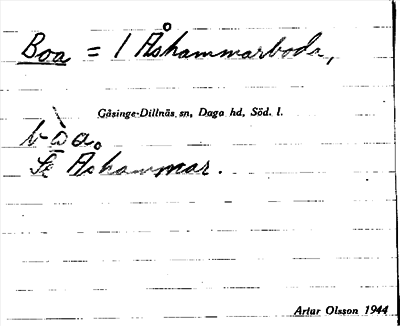 Boa = 1 Åshammarboda,
Gåsinge-Dillnäs sn, Daga hd, Söd. l.
Se Åshammar.
Artur Olsson 1944